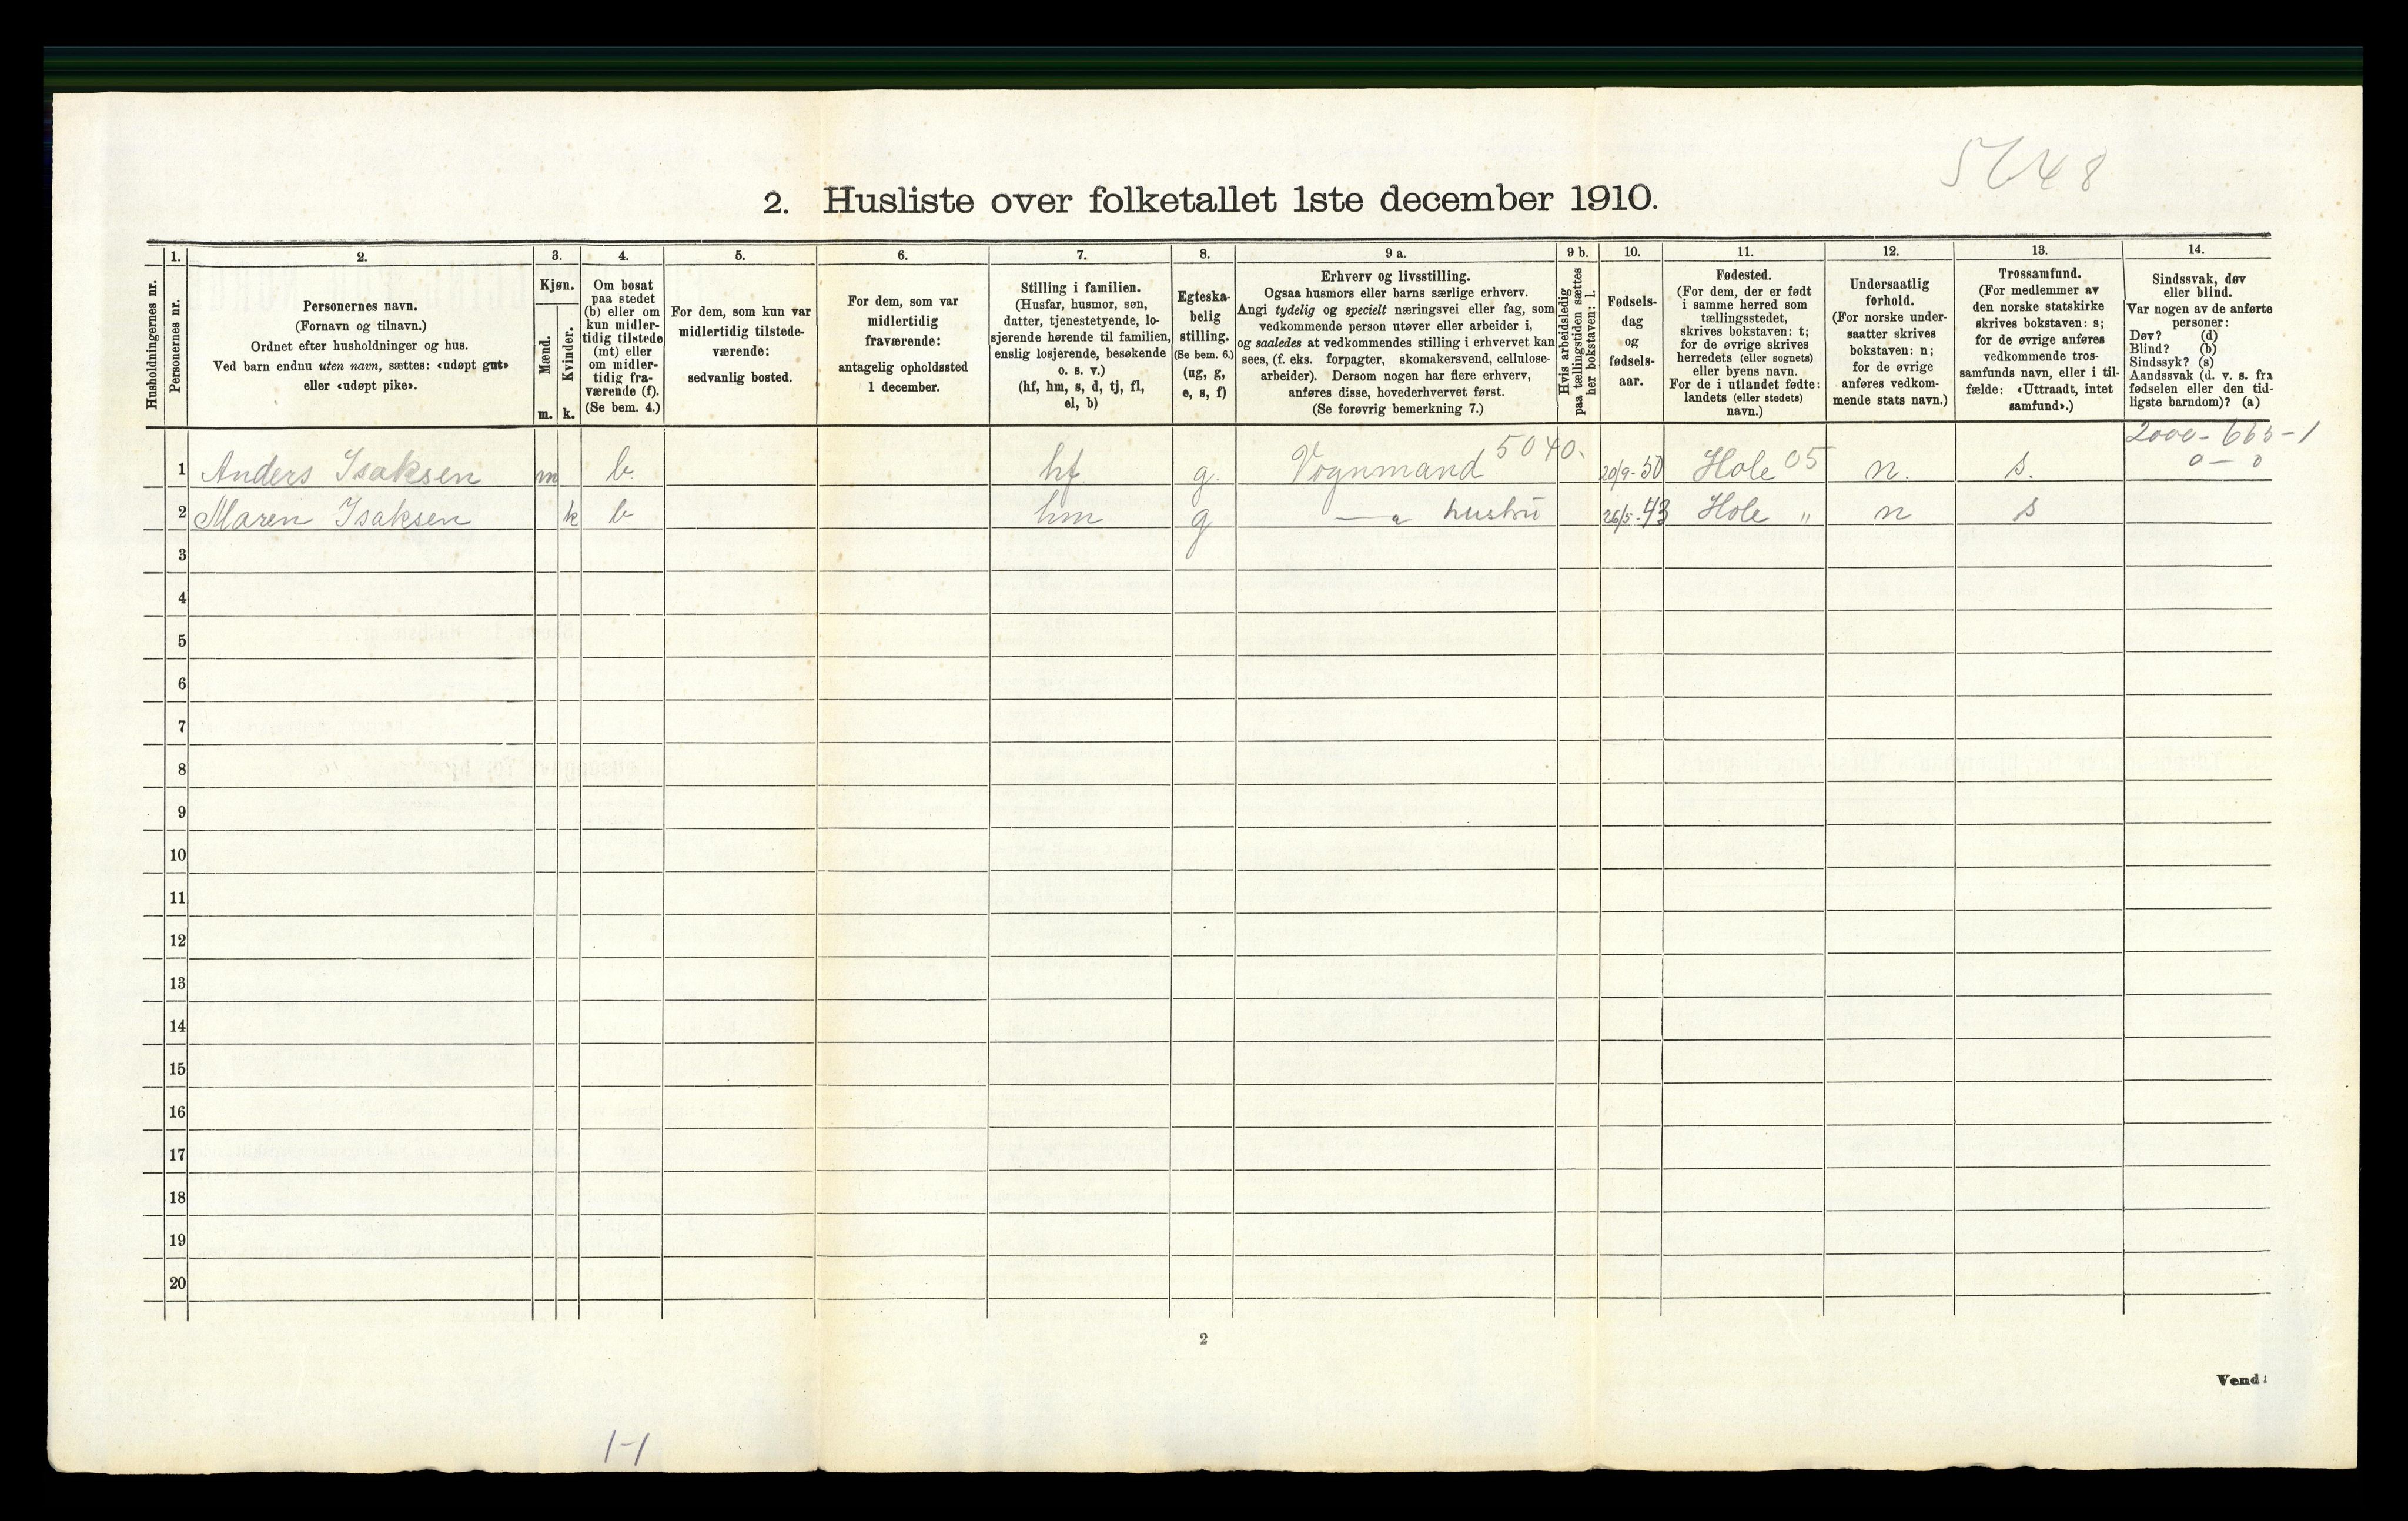 5648
2. Husliste over folketallet 1ste december 1910.
Husholdningernes nr.
1.
Personernes nr.
2.
Personernes navn.
(Fornavn og tilnavn.)
Ordnet efter husholdninger og hus.
Ved barn endnu uten navn, sættes: «udøpt gut»
eller «udøpt pike».
3.
Kjøn.
Mænd.
m.
Kvinder.
k.
4.
Om bosat
paa stedet
(b) eller om
kun midler-
tidig tilstede
(mt) eller
om midler-
tidig fra-
værende (f).
(Se bem. 4.)
5.
For dem, som kun var
midlertidig tilstede-
værende:
sedvanlig bosted.
6.
For dem, som var
midlertidig
fraværende:
antagelig opholdssted
1 december.
7.
Stilling i familien.
(Husfar, husmor, søn,
datter, tjenestetyende, lo-
sjerende hørende til familien,
enslig losjerende, besøkende
o. s. v.)
(hf, hm, s, d, tj, fl,
el, b)
8.
Egteska-
belig
stilling.
(Se bem. 6.)
(ug, g,
e, s, f)
9 a.
Erhverv og livsstilling.
Ogsaa husmors eller barns særlige erhverv.
Angi tydelig og specielt næringsvei eller fag, som
vedkommende person utøver eller arbeider i,
og saaledes at vedkommendes stilling i erhvervet kan
sees, (f. eks. forpagter, skomakersvend, cellulose-
arbeider). Dersom nogen har flere erhverv,
anføres disse, hovederhvervet først.
(Se forøvrig bemerkning 7.)
9 b.
Hvis arbeidsledig
paa tællingstiden sættes
her bokstaven: l.
10.
Fødsels-
dag
og
fødsels-
aar.
11.
Fødested.
(For dem, der er født
i samme herred som
tællingsstedet,
skrives bokstaven: t;
for de øvrige skrives
herredets (eller sognets)
eller byens navn.
For de i utlandet fødte:
landets (eller stedets)
navn.)
12.
Undersaatlig
forhold.
(For norske under-
saatter skrives
bokstaven: n;
for de øvrige
anføres vedkom-
mende stats navn.)
13.
Trossamfund.
(For medlemmer av
den norske statskirke
skrives bokstaven: s;
for de øvrige anføres
vedkommende tros-
samfunds navn, eller i til-
fælde: «Uttraadt, intet
samfund».)
14.
Sindssvak, døv
eller blind.
Var nogen av de anførte
personer:
Døv? (d)
Blind? (b)
Sindssyk? (s)
Aandssvak (d. v. s. fra
fødselen eller den tid-
ligste barndom)? (a)
2000-665-1
0 — 0
1 Anders Isaksen m b. hf g. Vognmand 5040. 20/9-50 Hole 05 n. s.
2 Maren Isaksen k b hm g —"— hustru 26/5-43 Hole " n s
3
4
5
6
7
8
9
10
11
12
13
14
15
16
17
18
19
20
2
Vend!
1-1